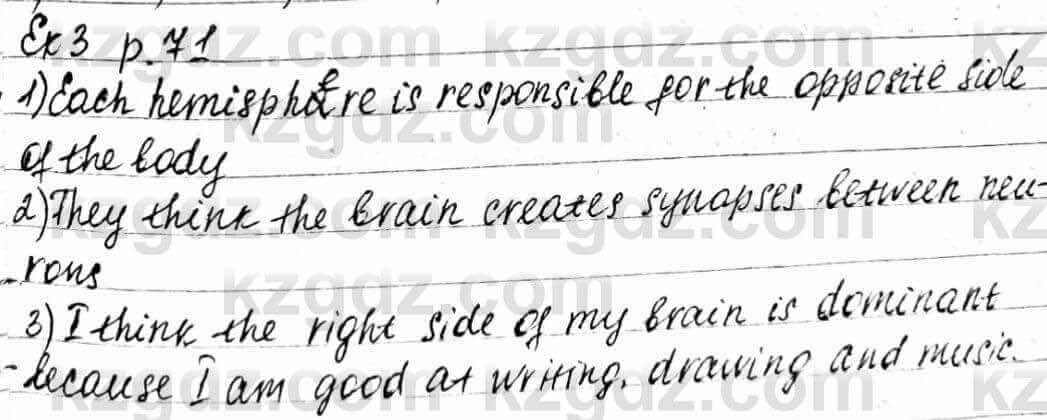 Ex 3 p. 71
1) Each hemisphere is responsible for the opposite side
of the body
2) They think the brain creates synapses between neu-
rons
3) I think the right side of my brain is dominant
because I am good at writing, drawing and music.
kzgdz.com